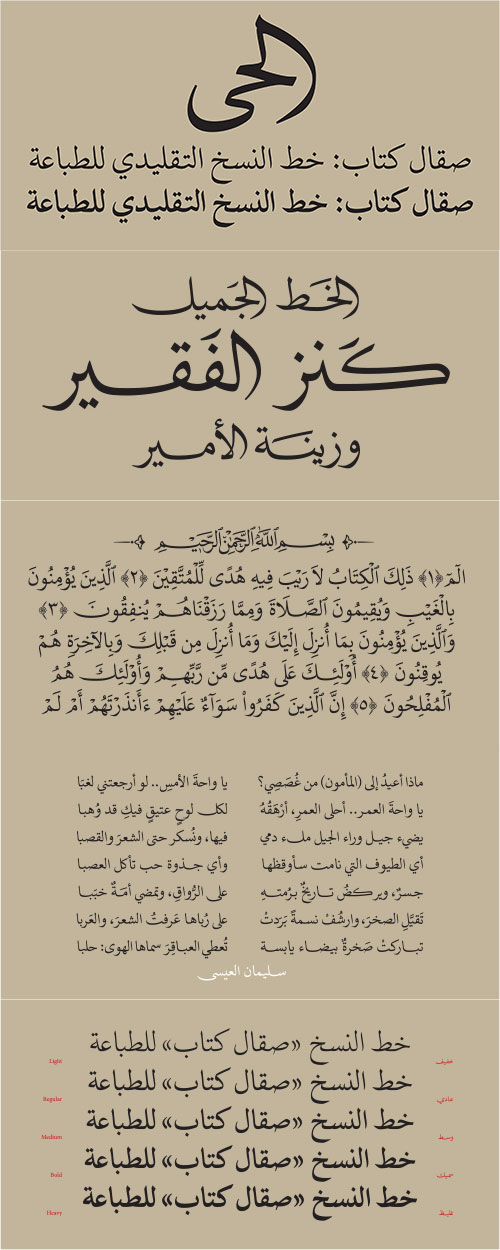 الحى
صقال كتاب: خط النسخ التقليدي للطباعة
صقال كتاب: خط النسخ التقليدي للطباعة
الخَط الجَميل
كَنز الفَقير
وزينَة الأمير
بِسْمِ اللَّهِ الرَّحْمَٰنِ الرَّحِيمِ
الٓمٓ ﴿١﴾ ذَٰلِكَ ٱلْكِتَابُ لَا رَيْبَ فِيهِ هُدًى لِّلْمُتَّقِينَ ﴿٢﴾ ٱلَّذِينَ يُؤْمِنُونَ
بِٱلْغَيْبِ وَيُقِيمُونَ ٱلصَّلَاةَ وَمِمَّا رَزَقْنَاهُمْ يُنفِقُونَ ﴿٣﴾
وَٱلَّذِينَ يُؤْمِنُونَ بِمَا أُنزِلَ إِلَيْكَ وَمَا أُنزِلَ مِن قَبْلِكَ وَبِٱلآخِرَةِ هُمْ
يُوقِنُونَ ﴿٤﴾ أُوْلَٰئِكَ عَلَى هُدًى مِّن رَّبِّهِمْ وَأُوْلَٰئِكَ هُمُ
ٱلْمُفْلِحُونَ ﴿٥﴾ إِنَّ ٱلَّذِينَ كَفَرُواْ سَوَآءٌ عَلَيْهِمْ ءَأَنذَرْتَهُمْ أَمْ لَمْ
ماذا أعيدُ إلى (المأمون) من غُصَصِي؟ يا واحةَ الأمسِ.. لو أرجعتني لغبَا
يا واحةَ العمر.. أحلى العمرِ، أرْهَقُهُ لكل لوحٍ عتيقٍ فيكِ قد وُهبا
يضيء جيل وراء الجيل ملء دمي فيها، ونُسكر حتى الشعرَ والقصبا
أي الطيوف التي نامت سأوقظها وأي جذوة حب تأكل العصبا
جسرٌ، ويركضُ تاريخٌ برُمتهِ على الرُّواقِ، وتمضي أمَةٌ خبَبا
تَقيَّلِ الصخرَ، وارشُفْ نسمةً بَرَدتْ على رُباها عَرفتُ الشعرَ، والعَربا
تباركتْ صَخرةٌ بيضاء يابسة تُعطي العباقِرَ سماها الهوى: حلبا
سليمان العيسى
خط النسخ «صقال كتاب» للطباعة
خفيف Light
خط النسخ «صقال كتاب» للطباعة
عادي Regular
خط النسخ «صقال كتاب» للطباعة
وسط Medium
خط النسخ «صقال كتاب» للطباعة
سميك Bold
خط النسخ «صقال كتاب» للطباعة
غليظ Heavy